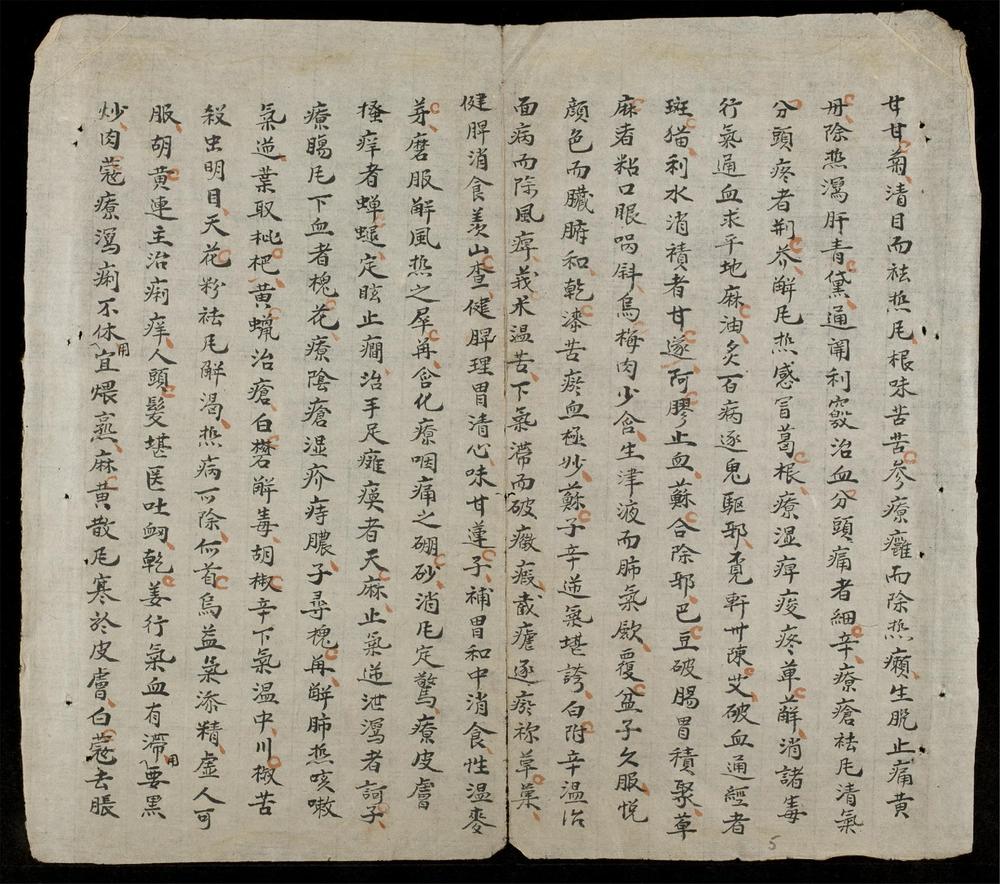 甘甘菊清目而祛热凥根味苦苦參療癰而除热癩生肌止痛黄
丹除热瀉肝青黛通開利竅治血分頭痛者細辛療瘡祛凥清氣
分頭疼者荆芥解凥热感冒葛根療湿痺痠疼草薢消諸毒
行氣通血求乎地麻油炙百病逐鬼驅邪覓軒卅陳艾破血通經者
斑猫利水消積者甘遂阿膠止血蘇合除邪巴豆破腸胃積聚草
麻者粘口眼喎斜烏梅肉少含生津液而肺氣歛覆盆子久服悅
顔色而臟腑和乾漆苦瘀血極妙蘇子辛逆氣堪誇白附辛温治
面病而除風痺莪朮温苦下氣滯而破癥瘕截瘧逐瘀祢草菓
健脾消食羨山查健脾理胃清心味甘蓮子補胃和中消食性温麥
芽磨服解風热之犀再含化療咽痛之硼砂消凥定驚療皮膚
搔痒者蟬蜕定眩止癇治手足癱瘓者天麻止氣逆泄瀉者訶子
療腸凥下血者槐花療陰瘡湿疥痔膿子尋槐再解肺热咳嗽
氣逆葉取枇杷黄蝋治瘡白礬解毒胡椒辛下氣温中川椒苦
殺虫明目天花粉祛凥解渴热病可除何首烏益氣添精虚人可
服胡黄連主治痢痒人頭髮堪医吐衂乾姜行氣血有滯用要黑
炒肉蔻療瀉痢不休用宜煨熟麻黄散凥寒於皮膚白蔻去脹
5